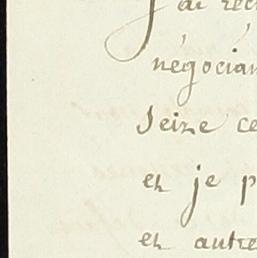 J'ai reç
négocian
Seize ce
et je p
et autre